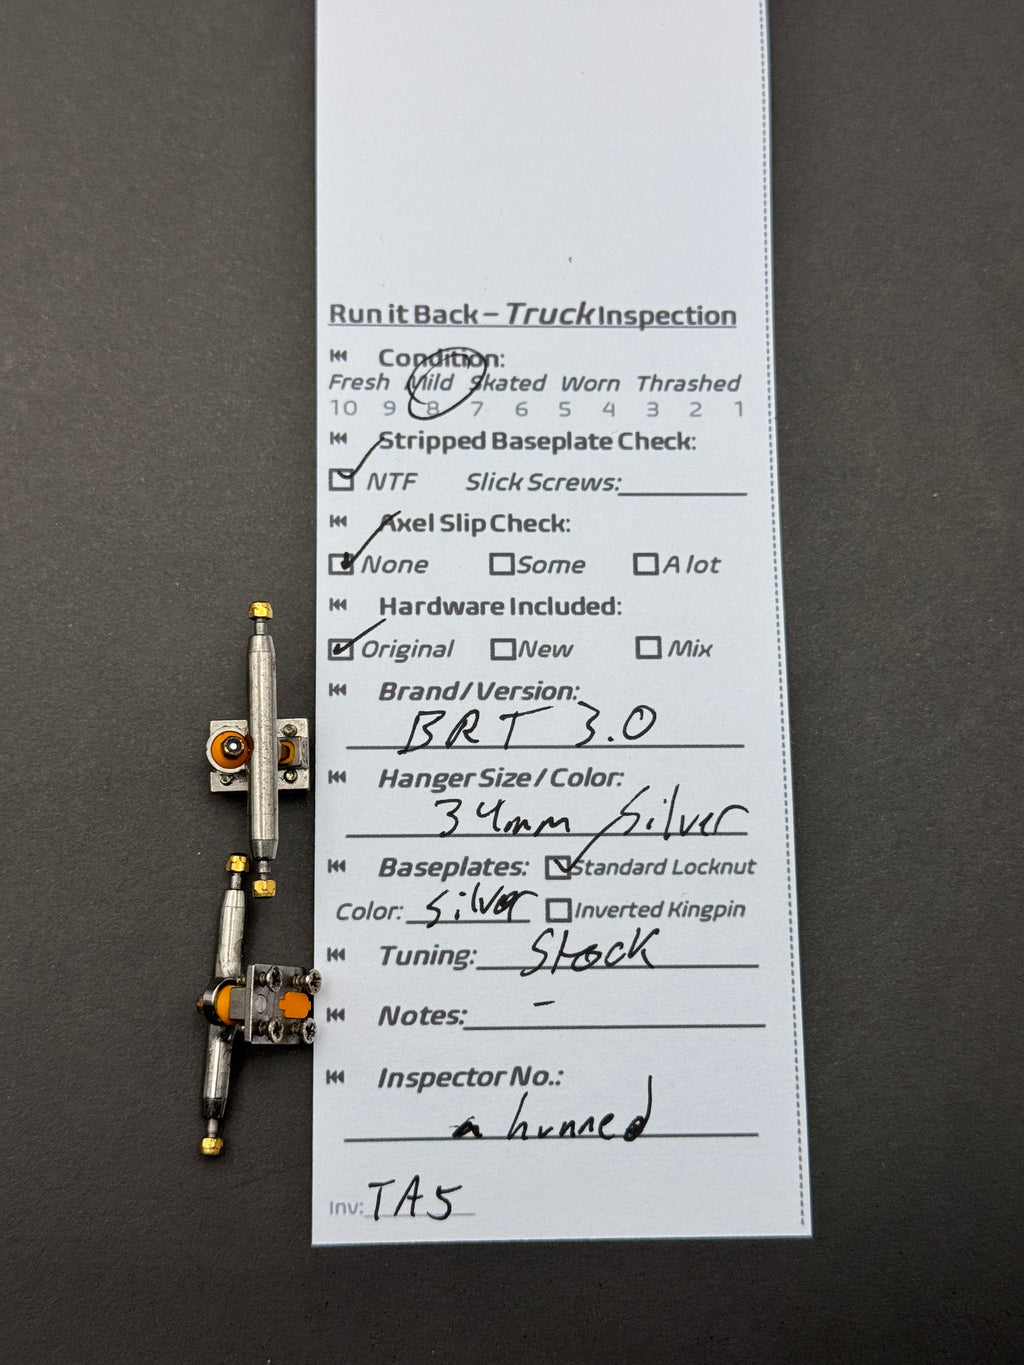 Run it Back – Truck Inspection
Condition:
Fresh Mild Skated Worn Thrashed
10 9 8 7 6 5 4 3 2 1
Stripped Baseplate Check:
NTF Slick Screws:
Axel Slip Check:
None Some A lot
Hardware Included:
Original New Mix
Brand / Version:
BRT 3.0
Hanger Size / Color:
34mm Silver
Baseplates: Standard Locknut
Color: Silver Inverted Kingpin
Tuning: Stock
Notes: –
Inspector No.:
a hunned
Inv: TA5